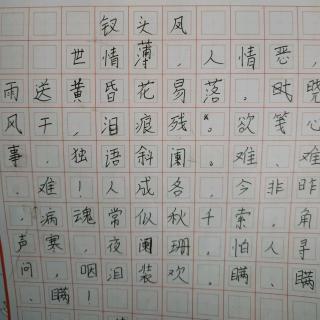 钗头凤
世情薄，人情恶，
雨送黄昏花易落。晓
风干，泪痕残。欲笺心
事，独语斜阑。难、难
、难！人成各，今非昨
，病魂常似秋千索，角
声寒，夜阑珊，怕人寻
问，咽泪装欢。瞒、瞒
、瞒！